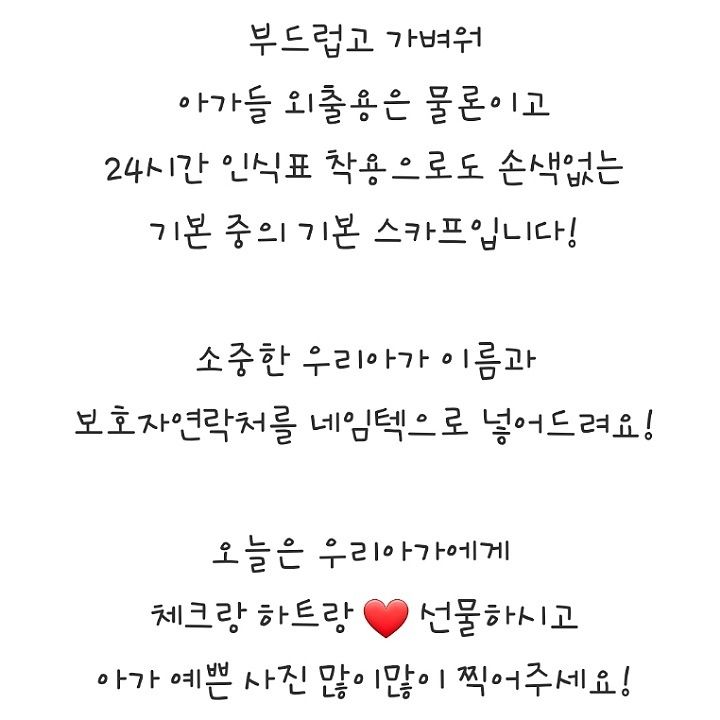 부드럽고 가벼워
아가들 외출용은 물론이고
24시간 인식표 착용으로도 손색없는
기본 중의 기본 스카프입니다!
소중한 우리아가 이름과
보호자연락처를 네임텍으로 넣어드려요!
오늘은 우리아가에게
체크랑 하트랑 ❤️ 선물하시고
아가 예쁜 사진 많이많이 찍어주세요!